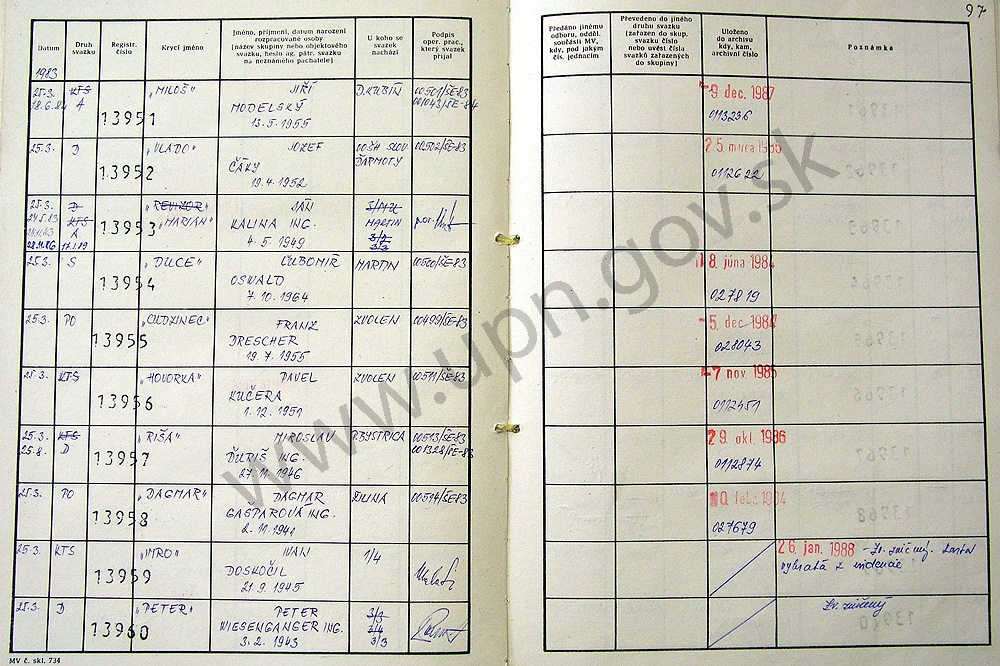 97
Datum
Druh svazku
Registr. číslo
Krycí jméno
Jméno, příjmení, datum narození
rozpracované osoby
(název skupiny nebo objektového
svazku, heslo ag. pátr. svazku
na neznámého pachatele)
U koho se
svazek
nachází
Podpis
oper. prac.,
který svazek
přijal
Předáno jinému
odboru, odděl.
součásti MV,
kdy, pod jakým
čís. jednacím
Převedeno do jiného
druhu svazku
(zařazen do skup.
svazku číslo
nebo uvést čísla
svazků zařazených
do skupiny)
Uloženo
do archivu
kdy, kam,
archivní číslo
Poznámka
1983
25.3. KTS „MILOŠ" JIŘÍ D.KUBÍN 00501/ŠE-83
28.6.84 A 13951 MODELSKÝ 001043/ŠE-84
13.5.1955
9 dec. 1987
0113236
25.3. D „VLADO" JOZEF 00502/ŠE-83
13952 ČÁKY
19.4.1952
25. marca 1986
0112622
25.3. D „REVIZOR" JÁN
KTS 13953 „MARIAN" KALINA ING. MARTIN
A 4.5.1949 3/3
25.3. S „DUCE" ĽUBOMÍR MARTIN 00500/ŠE-83
13954 OSWALD
7.10.1964
18. júna 1984
027819
25.3. PO „CUDZINEC" FRANZ ZVOLEN 00499/ŠE-83
13955 DRESCHER
19.7.1955
5. dec. 1984
028043
25.3. KTS „HOVORKA" PAVEL ZVOLEN 00511/ŠE-83
13956 KUČERA
1.12.1951
7 nov. 1985
0112451
25.3. KTS „RIŠA" MIROSLAV B.BYSTRICA 00513/ŠE-83
25.8. D 13957 ĎURIŠ ING. 001328/ŠE-83
27.11.1946
29. okt. 1986
0112874
25.3. PO „DAGMAR" DAGMAR ŽILINA 00514/ŠE-83
13958 GAŠPAROVÁ ING.
2.11.1941
10. feb. 1984
027679
25.3. KTS „IMRO" IVAN 1/4
13959 DOSKOČIL
21.9.1945
26. jan. 1988 - Zv. znič
vybratá z evidencie
25.3. D „PETER" PETER 3/3
13960 WIESENGANGER ING. 3/4
3.2.1943 3/3
Zv. zničený
MV č. skl. 734
www.upn.gov.sk